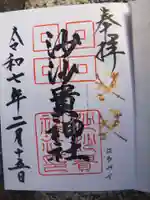 奉拝
沙沙貴神社
令和七年二月十五日